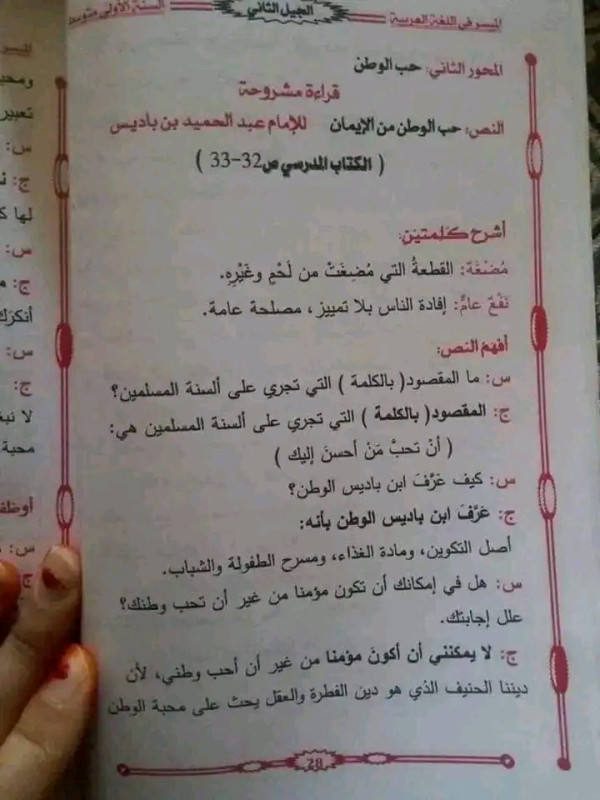 الميسر في اللغة العربية
الجيل الثاني
السنة الأولى متوسط
المحور الثاني: حب الوطن
قراءة مشروحة
النص: حب الوطن من الإيمان للإمام عبد الحميد بن باديس
( الكتاب المدرسي ص32-33 )
أشرح كلمتين:
مُضْغَة: القطعةُ التي مُضِغَتْ من لَحْمٍ وغَيْرِهِ.
نَفْعٌ عامٌّ: إفادة الناس بلا تمييز، مصلحة عامة.
أفهم النص:
س: ما المقصود( بالكلمة ) التي تجري على ألسنة المسلمين؟
ج: المقصود( بالكلمة ) التي تجري على ألسنة المسلمين هي:
( أنْ تحبَّ مَنْ أحسنَ إليك )
س: كيف عَرَّفَ ابن باديس الوطن؟
ج: عَرَّفَ ابن باديس الوطن بأنه:
أصل التكوين، ومادة الغذاء، ومسرح الطفولة والشباب.
س: هل في إمكانك أن تكون مؤمنا من غير أن تحب وطنك؟
علل إجابتك.
ج: لا يمكنني أن أكونَ مؤمنا من غير أن أحب وطني، لأن
ديننا الحنيف الذي هو دين الفطرة والعقل يحث على محبة الوطن
28